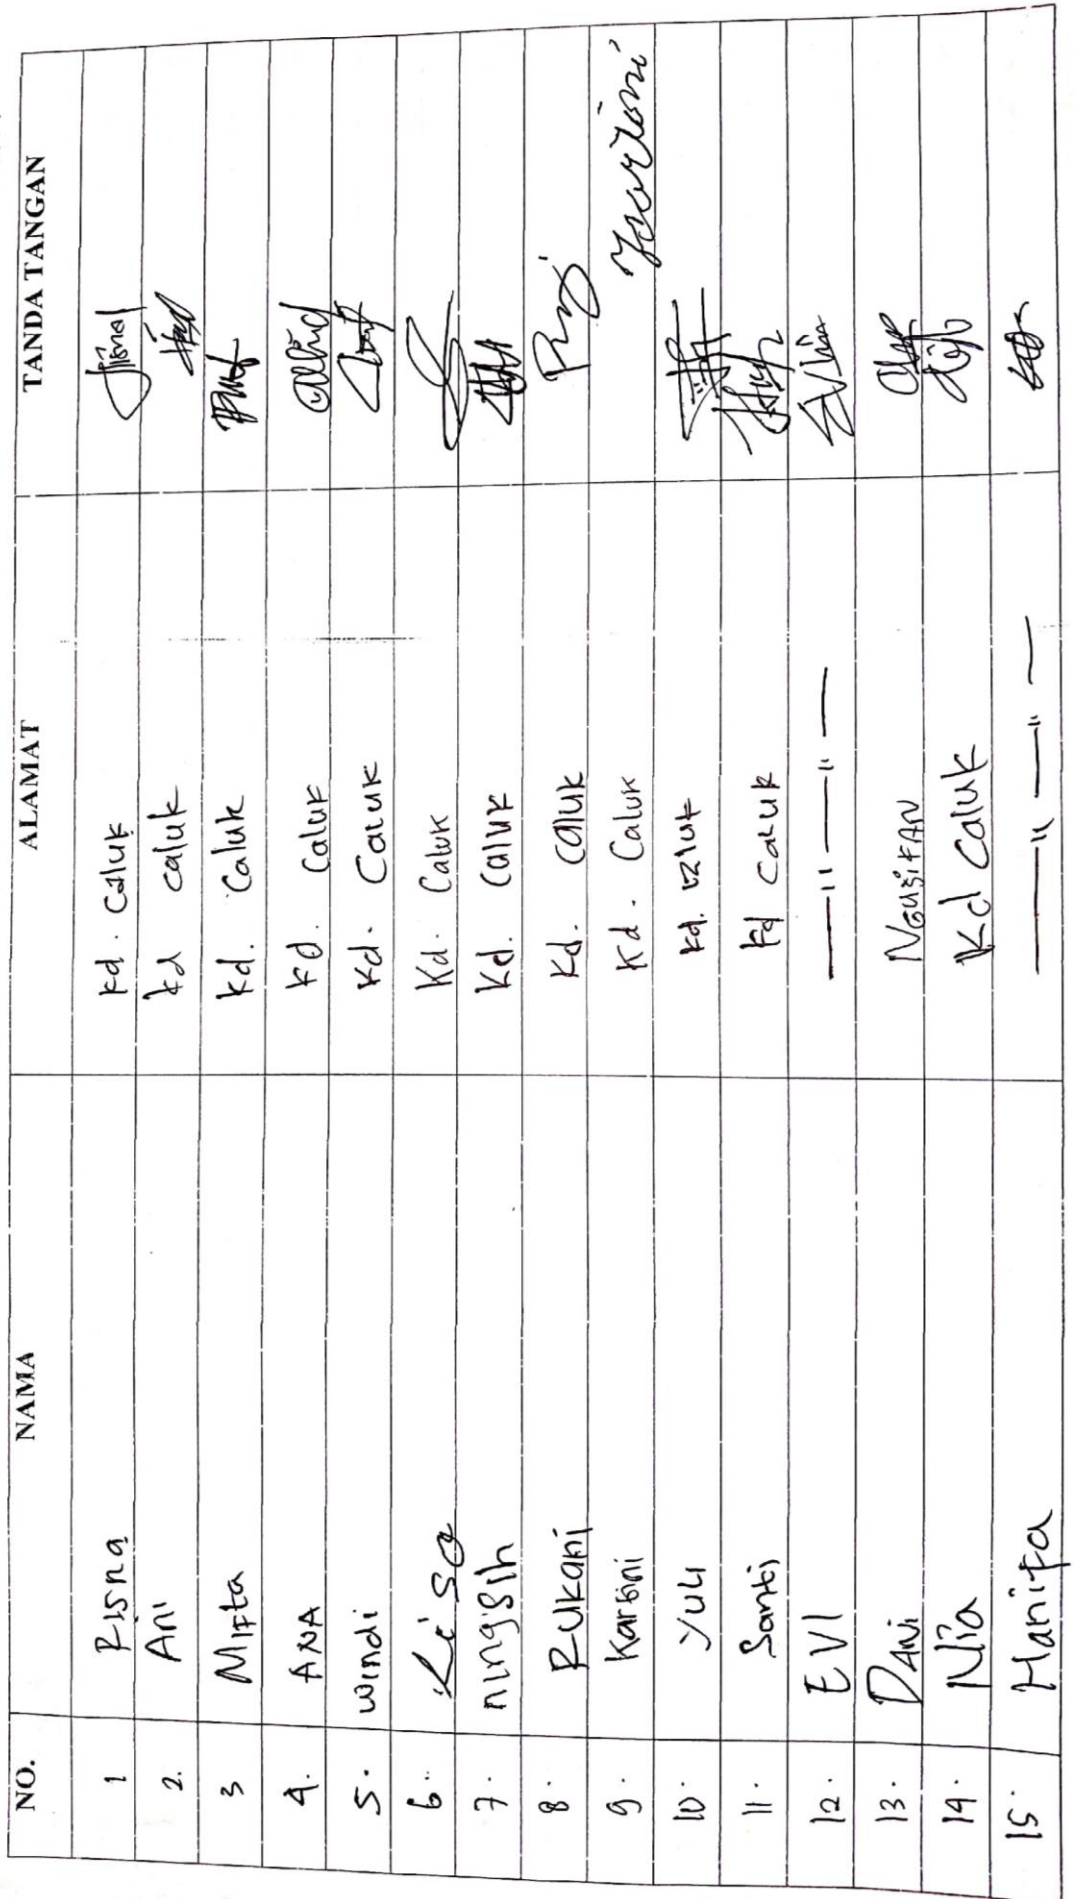 NO. NAMA ALAMAT TANDA TANGAN
1 Risna kd. Caluk
2. Ani kd caluk
3 Mifta kd. Caluk
4. ANA kd. Caluk
5. windi kd. Caluk
6. Lisa Kd. Caluk
7. ningsih Kd. Caluk
8. Rukani Kd. Caluk
9. Kartini Kd. Caluk
10. YULI kd. caluk
11. Santi kd caluk
12. EVI —— 11 —— 11 ——
13. DANi NGUSIKAN
14. Nia Kd Caluk
15. Hanifa —— 11 —— 11 ——